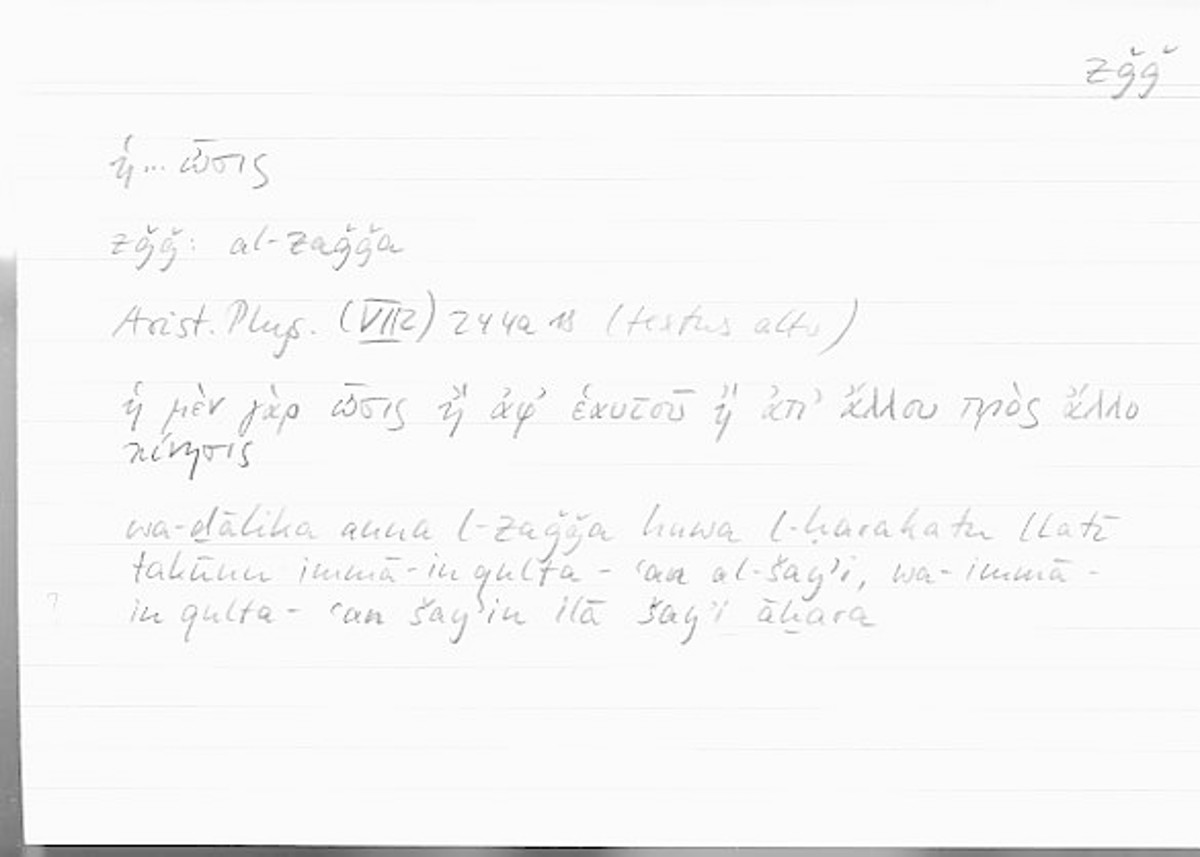 zǧǧ
ἡ... ὦσις
zǧǧ: al-zaǧǧa
Arist. Phys. (VII2) 244a 18 (textus alter)
ἡ μὲν γὰρ ὦσις ἢ ἀφ’ ἑαυτοῦ ἢ ἀπ’ ἄλλου πρὸς ἄλλο
κίνησις
wa-ḏālika anna l-zaǧǧa huwa l-ḥarakatu llatī
takūnu immā-in qulta- ʿan al-šayʾi, wa-immā-
? in qulta- ʿan šayʾin ilā šayʾi āḫara